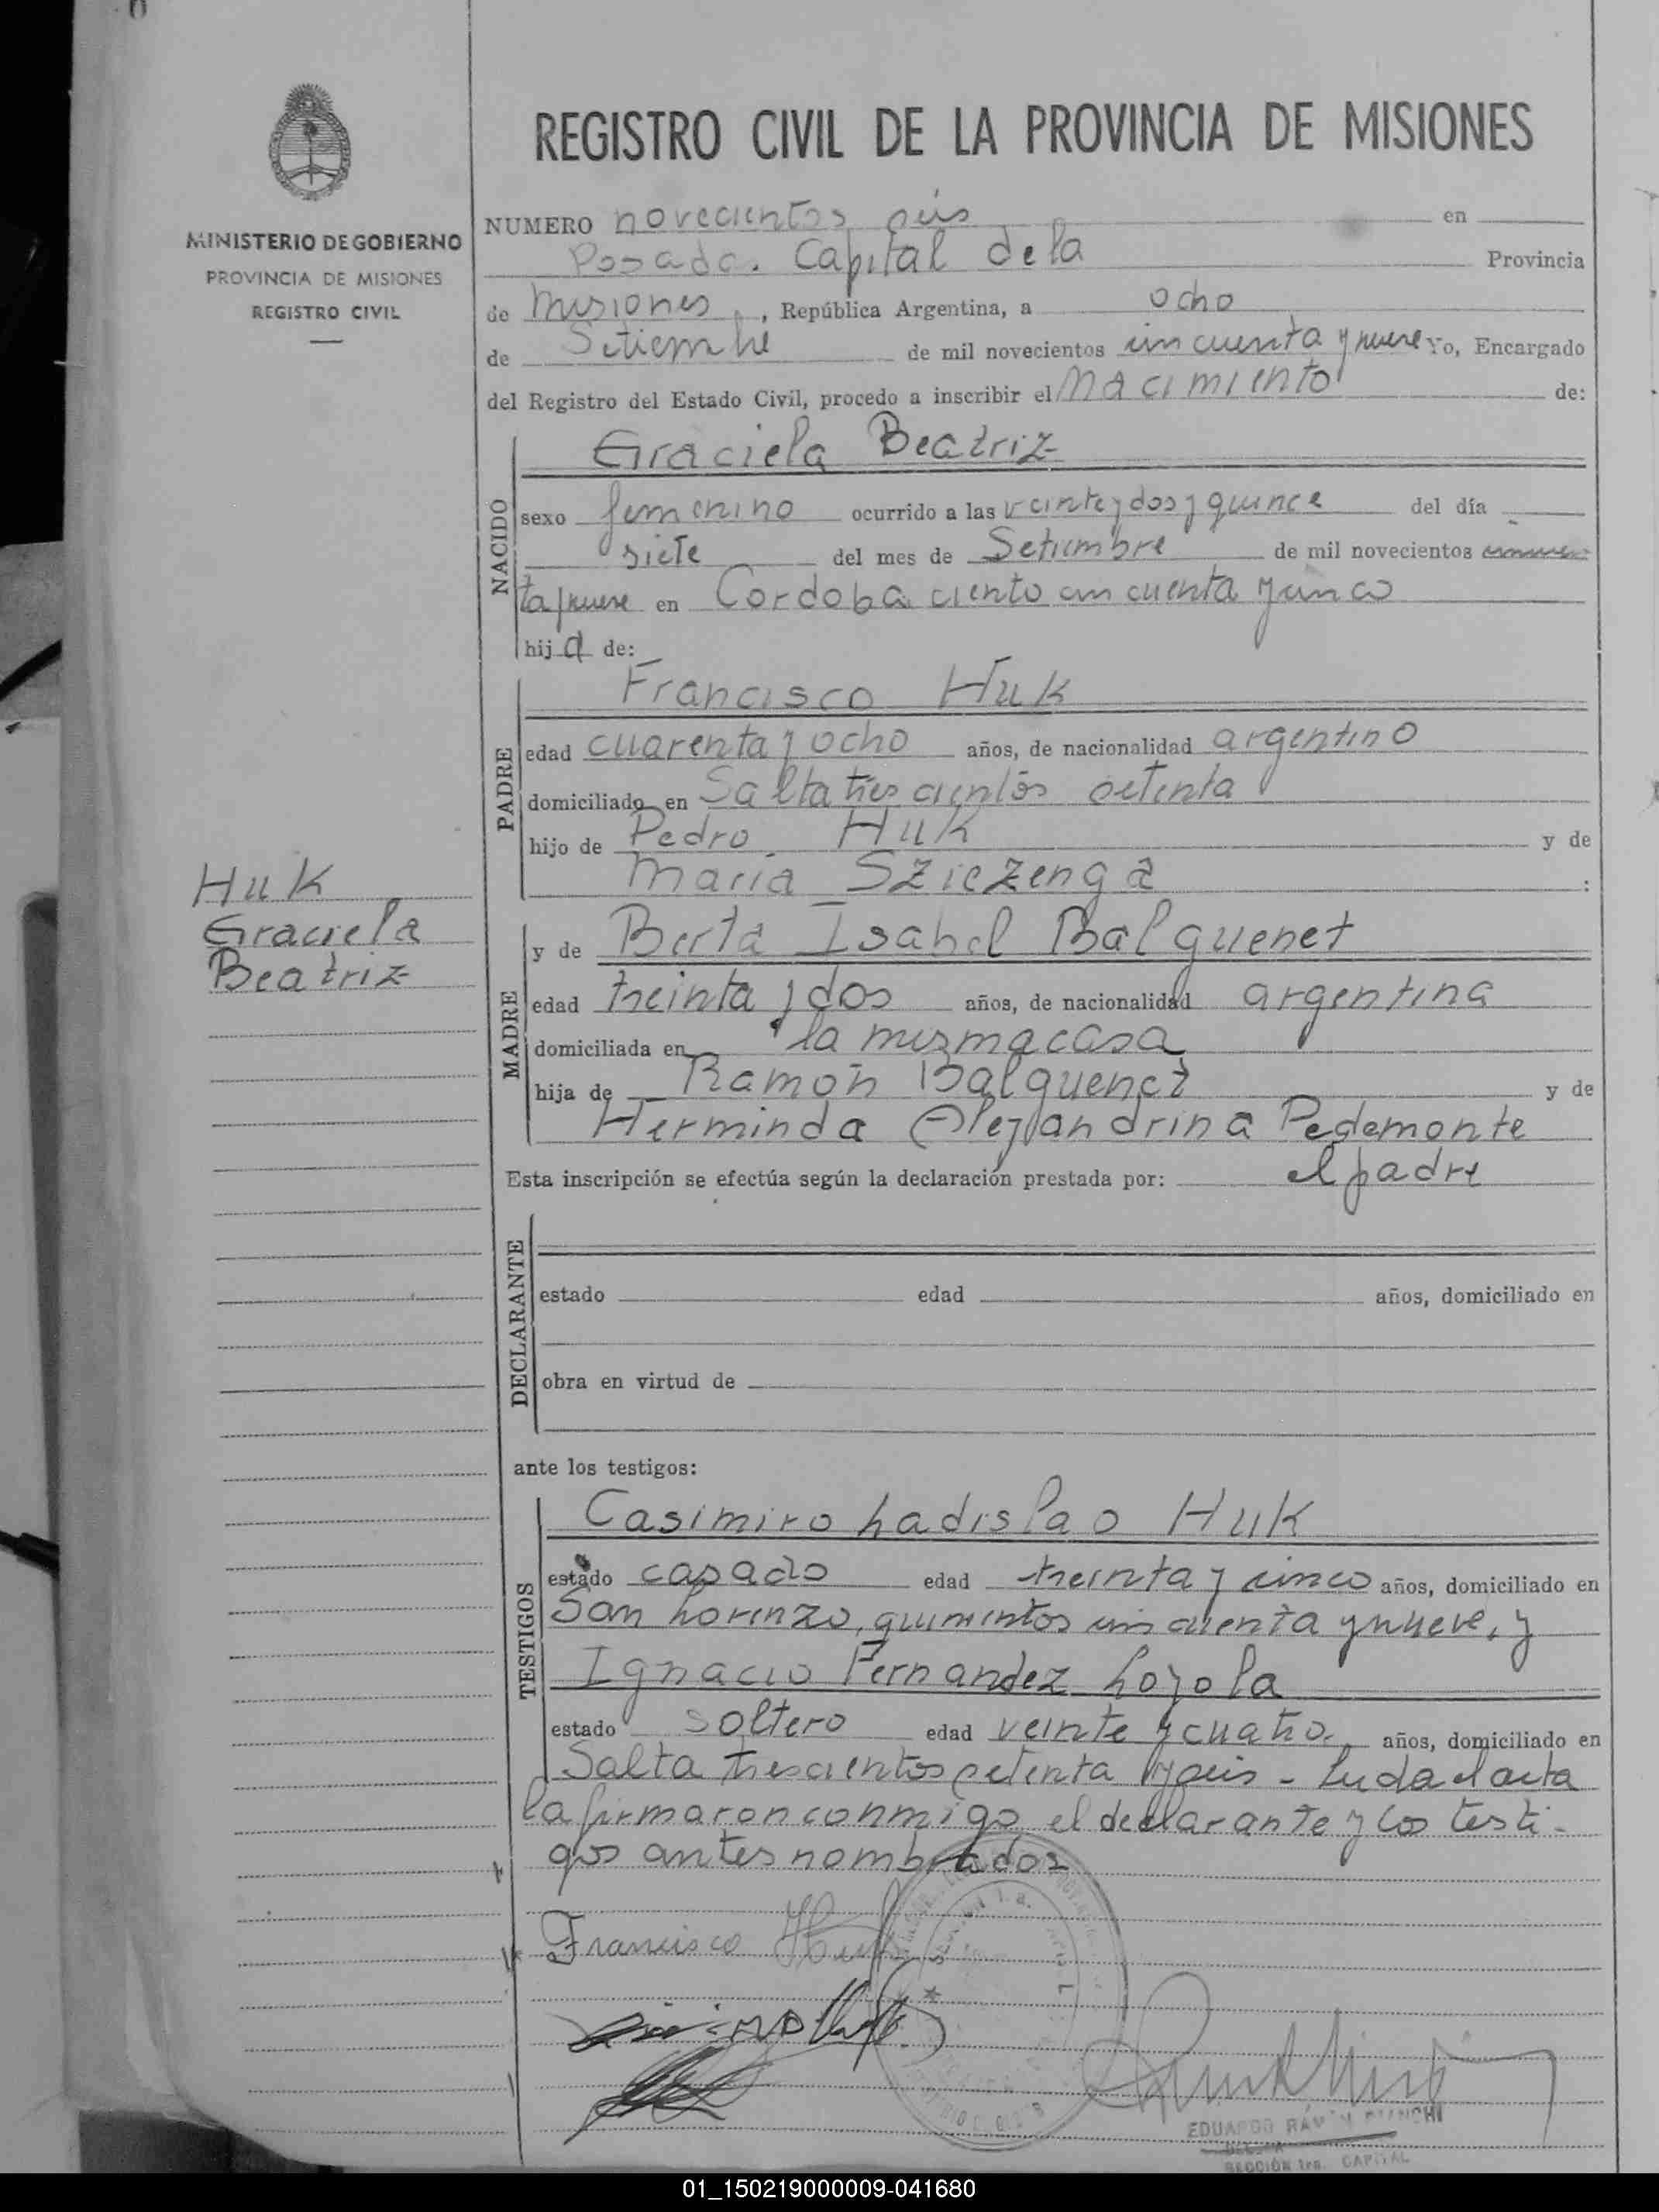 REGISTRO CIVIL DE LA PROVINCIA DE MISIONES
MINISTERIO DE GOBIERNO
PROVINCIA DE MISIONES
REGISTRO CIVIL
NUMERO novecientos seis en
Posadas. Capital de la Provincia
de Misiones, República Argentina, a ocho
de Setiembre de mil novecientos cincuenta y nueve Yo, Encargado
del Registro del Estado Civil, procedo a inscribir el Nacimiento de:
NACIDO
Graciela Beatriz
sexo femenino ocurrido a las veinte y dos y quince del día
siete del mes de Setiembre de mil novecientos cincuen
ta y nueve en Cordoba ciento cincuenta y cinco
hija de:
PADRE
Francisco Huk
edad cuarenta y ocho años, de nacionalidad argentino
domiciliado en Salta trescientos setenta
hijo de Pedro Huk y de
Maria Sziezenga :
Huk
Graciela
Beatriz
MADRE
y de Berta Isabel Balquenet
edad treinta y dos años, de nacionalidad argentina
domiciliada en la misma casa
hija de Ramón Balquenet y de
Herminda Alejandrina Pedemonte
Esta inscripción se efectúa según la declaración prestada por: el padre
DECLARANTE
estado edad años, domiciliado en
obra en virtud de
ante los testigos:
TESTIGOS
Casimiro Ladislao Huk
estado casado edad treinta y cinco años, domiciliado en
San Lorenzo, quinientos cincuenta y nueve, y
Ignacio Fernandez Loyola
estado soltero edad veinte y cuatro años, domiciliado en
Salta trescientos setenta y seis - Leida el acta
la firmaron conmigo el declarante y los testi-
gos antes nombrados
Francisco Huk
EDUARDO RAMÓN BIANCHI
SECCIÓN 1ra. CAPITAL
01_150219000009-041680